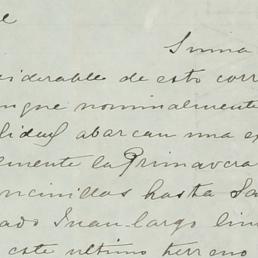 e
Suma
siderable de esto corr
nque nominalmente
lidad abarcan una ex
lmente la Primavera
ncinillas hasta Sa
ado Juan largo lin
este ultimo terreno